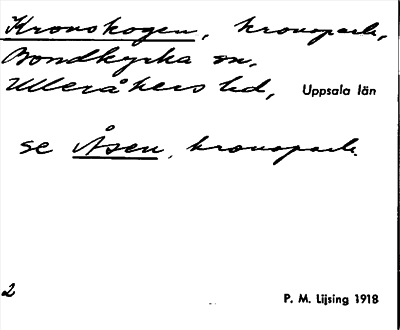 Kronskogen, kronopark,
Bondkyrka sn,
Ulleråkers hd, Uppsala län
se Åsen, kronopark.
2
P. M. Lijsing 1918